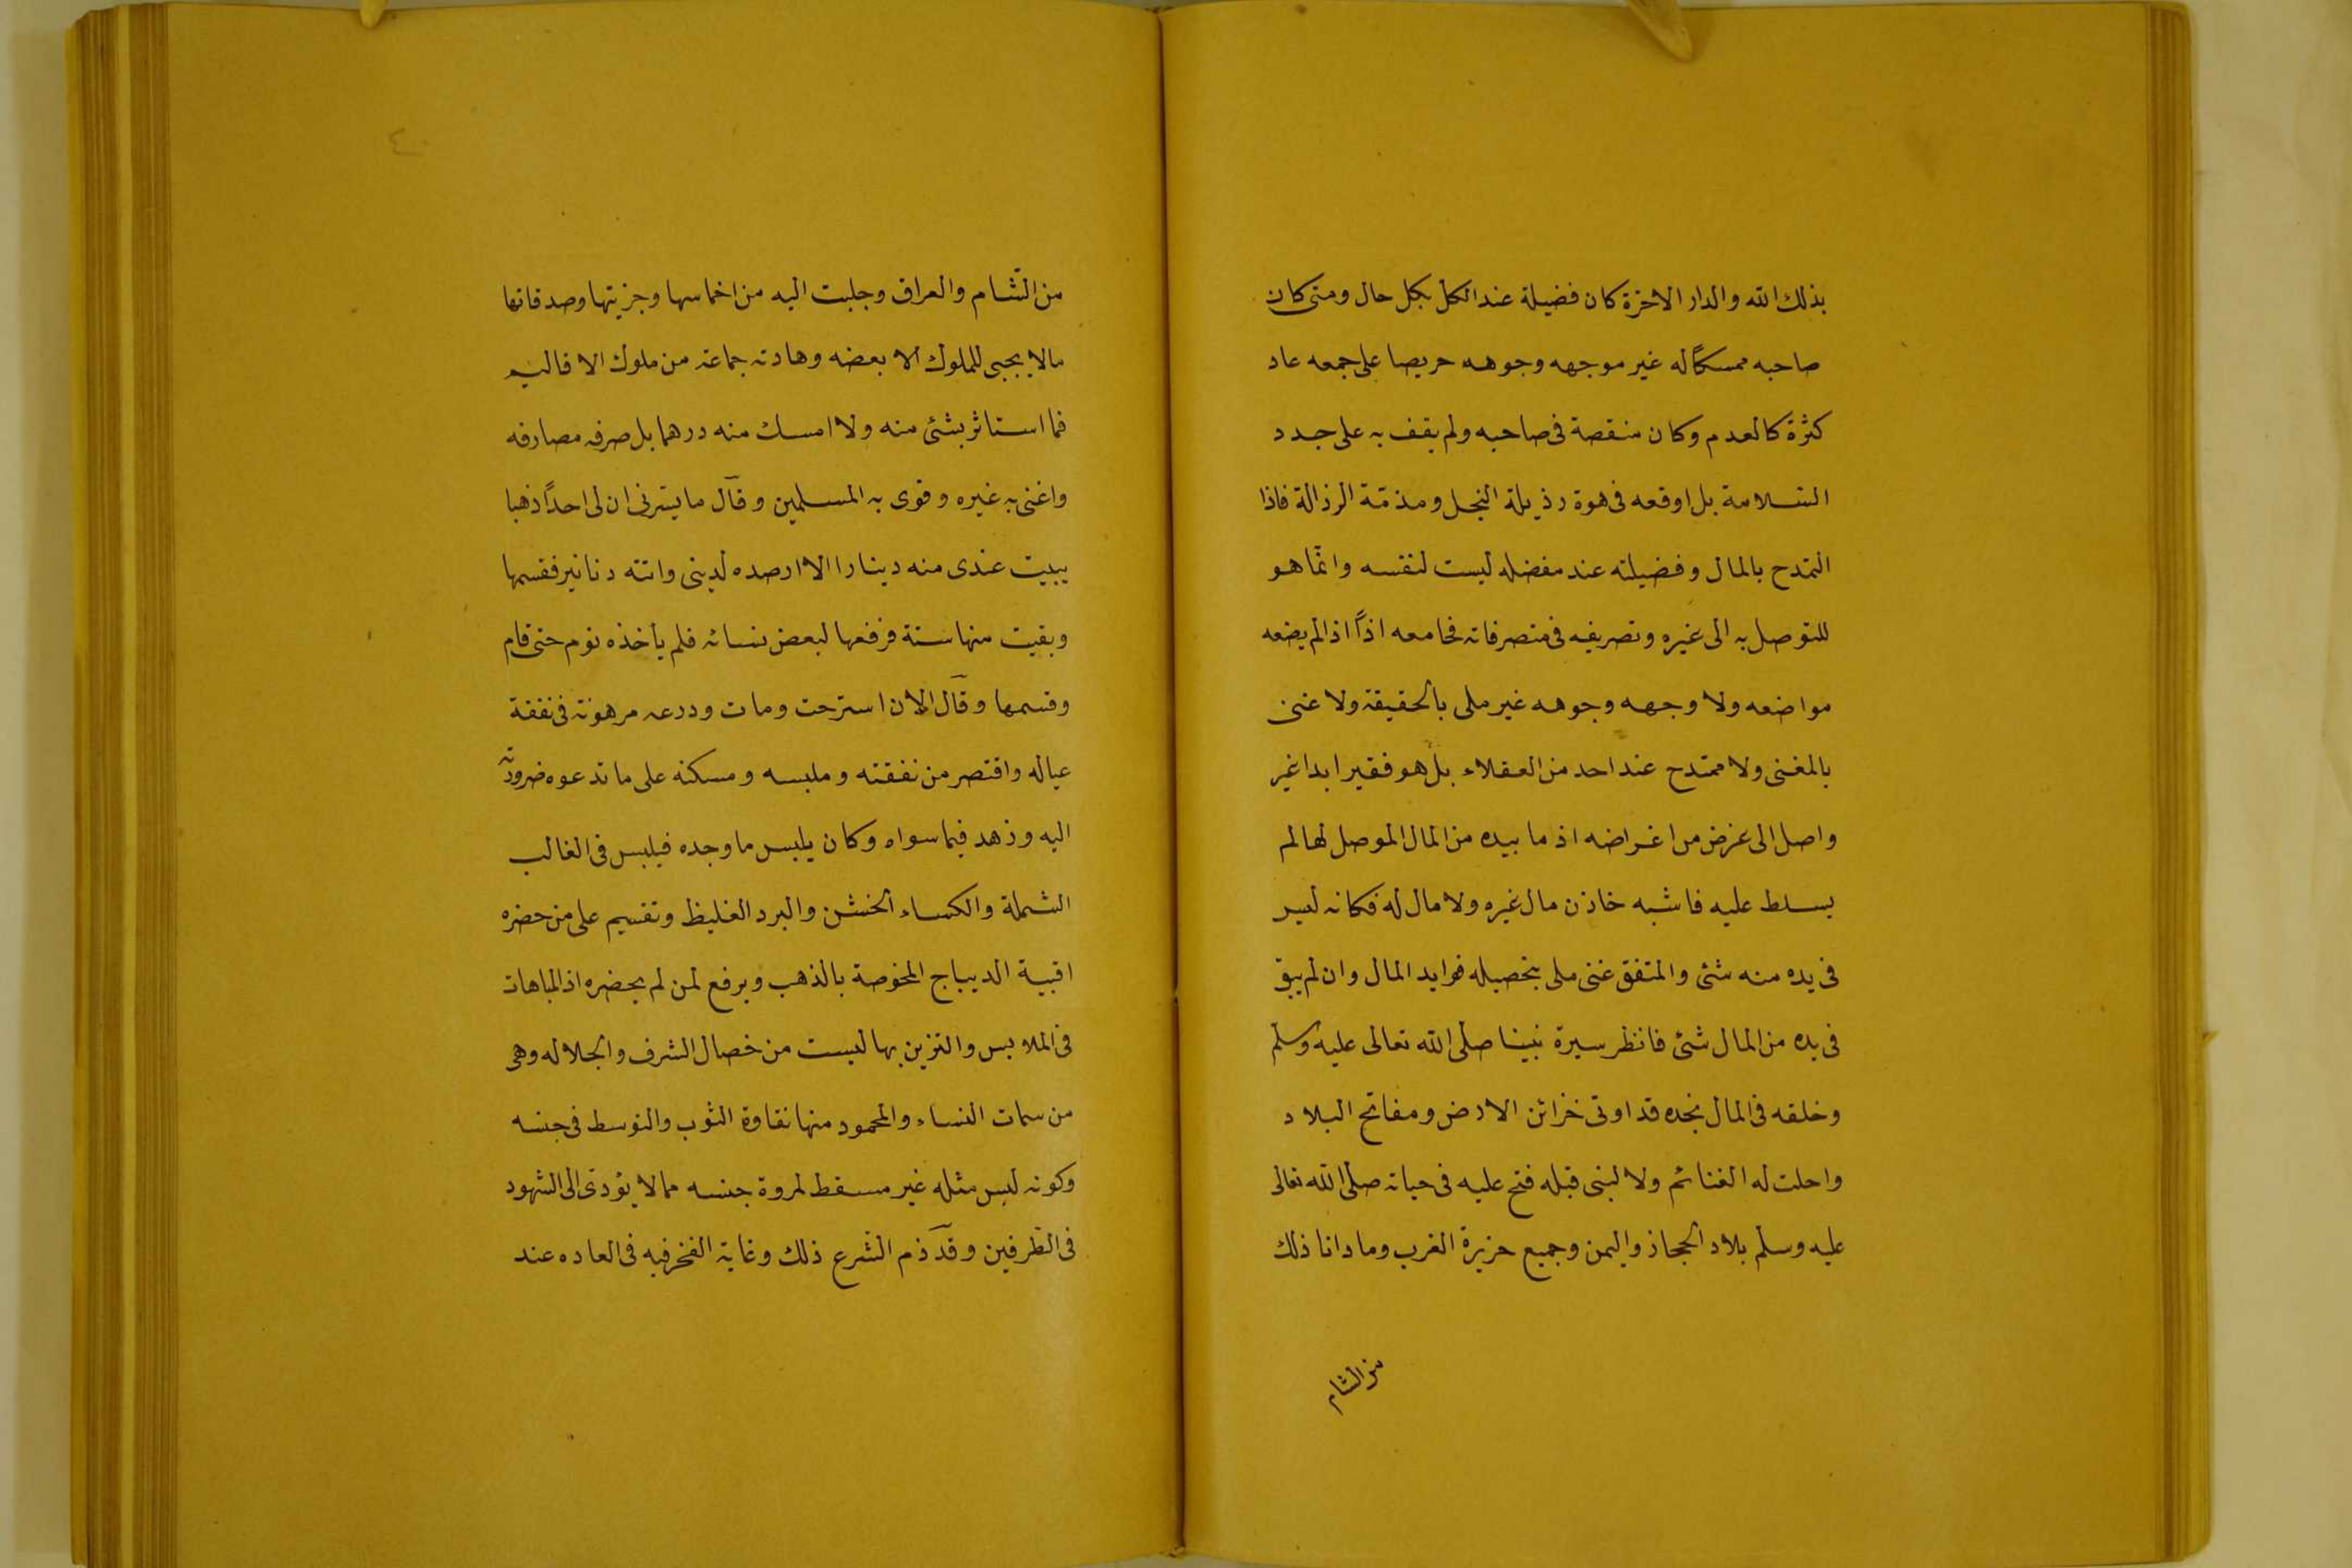 بذلك الله والدار الاخرة كان فضيلة عند الكل بكل حال ومتى كان
صاحبه ممسكاً له غير موجهه وجوهه حريصا على جمعه عاد
كثرة كالعدم وكان منقصة فى صاحبه ولم يقف به على جدد
السّلامة بل اوقعه فى هوة رذيلة البخل ومذمّة الرذالة فاذا
التمدح بالمال وفضيلته عند مفضله ليست لنفسه وانّما هو
للتوصل به الى غيره وتصريفه فى متصرفاته فجامعه اذاً اذا لم يضعه
مواضعه ولا وجهه وجوهه غير ملى بالحقيقة ولا غنى
بالمغنى ولا ممتدح عند احد من العقلاء بل هو فقير ابدا غير
واصل الى غرض من اغراضه اذ ما بيده من المال الموصل لها لم
يسلط عليه فاشبه خاذن مال غيره ولا مال له فكانه ليس
فى يده منه شئ والمتفق غنى ملى بتحصيله فوايد المال وان لم يبق
فى يده من المال شئ فانظر سيرة نبينا صلى الله تعالى عليه وسلم
وخلقه فى المال نجده قد اوتى خزائن الارض ومفاتح البلاد
واحلت له الغنائم ولا لنبى قبله فتح عليه فى حياته صلى الله تعالى
عليه وسلم بلاد الحجاز واليمن وجميع جزيرة الغرب وما دانا ذلك
من الشام
٤٠
من الشّام والعراق وجلبت اليه من اخماسها وجزيتها وصدقاتها
مالا يجبى للملوك الا بعضه وهادته جماعة من ملوك الاقاليم
فما استاثر بشئ منه ولا امسك منه درهما بل صرفه مصارفه
واغنى به غيره وقوى به المسلمين وقال ما يسّرنى ان لى احداً ذهبا
يبيت عندى منه دينارا الا ارصده لدينى واتته دنانير فقسمها
وبقيت منها ستة فرفعها لبعض نسائه فلم يأخذه نوم حتى قام
وقسمها وقال الان استرحت ومات ودرعه مرهونة فى نفقة
عياله واقتصر من نفقته وملبسه ومسكنه على ما تدعوه ضرورته
اليه وزهد فيما سواه وكان يلبس ما وجده فيلبس فى الغالب
الشملة والكساء الخشن والبرد الغليظ وتقسيم على من حضره
اقبية الديباج المخوصة بالذهب ويرفع لمن لم يحضره اذ المباهات
فى الملابس والتزين بها ليست من خصال الشرف والجلاله وهى
من سمات النساء والمحمود منها نقاوة الثوب والتوسط فى جنسه
وكونه لبس مثله غير مسقط لمروة جنسه مما لا يؤدى الى الشهود
فى الطرفين وقد ذم الشرع ذلك وغاية الفخر فيه فى العاده عند